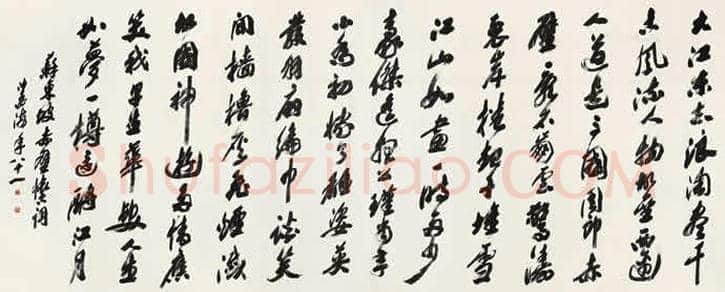 大江東去浪淘盡千
古風流人物故壘西邊
人道是三國周郎赤
壁亂石崩雲驚濤
裂岸捲起千堆雪
江山如畫一時多少
豪傑遙想公瑾當年
小喬初嫁了雄姿英
發羽扇綸巾談笑
間檣櫓灰飛煙滅
故國神遊多情應
笑我早生華髮人生
如夢一樽還酹江月
蘇東坡赤壁詞
沙孟海年八十一
Shufaziliao.COM